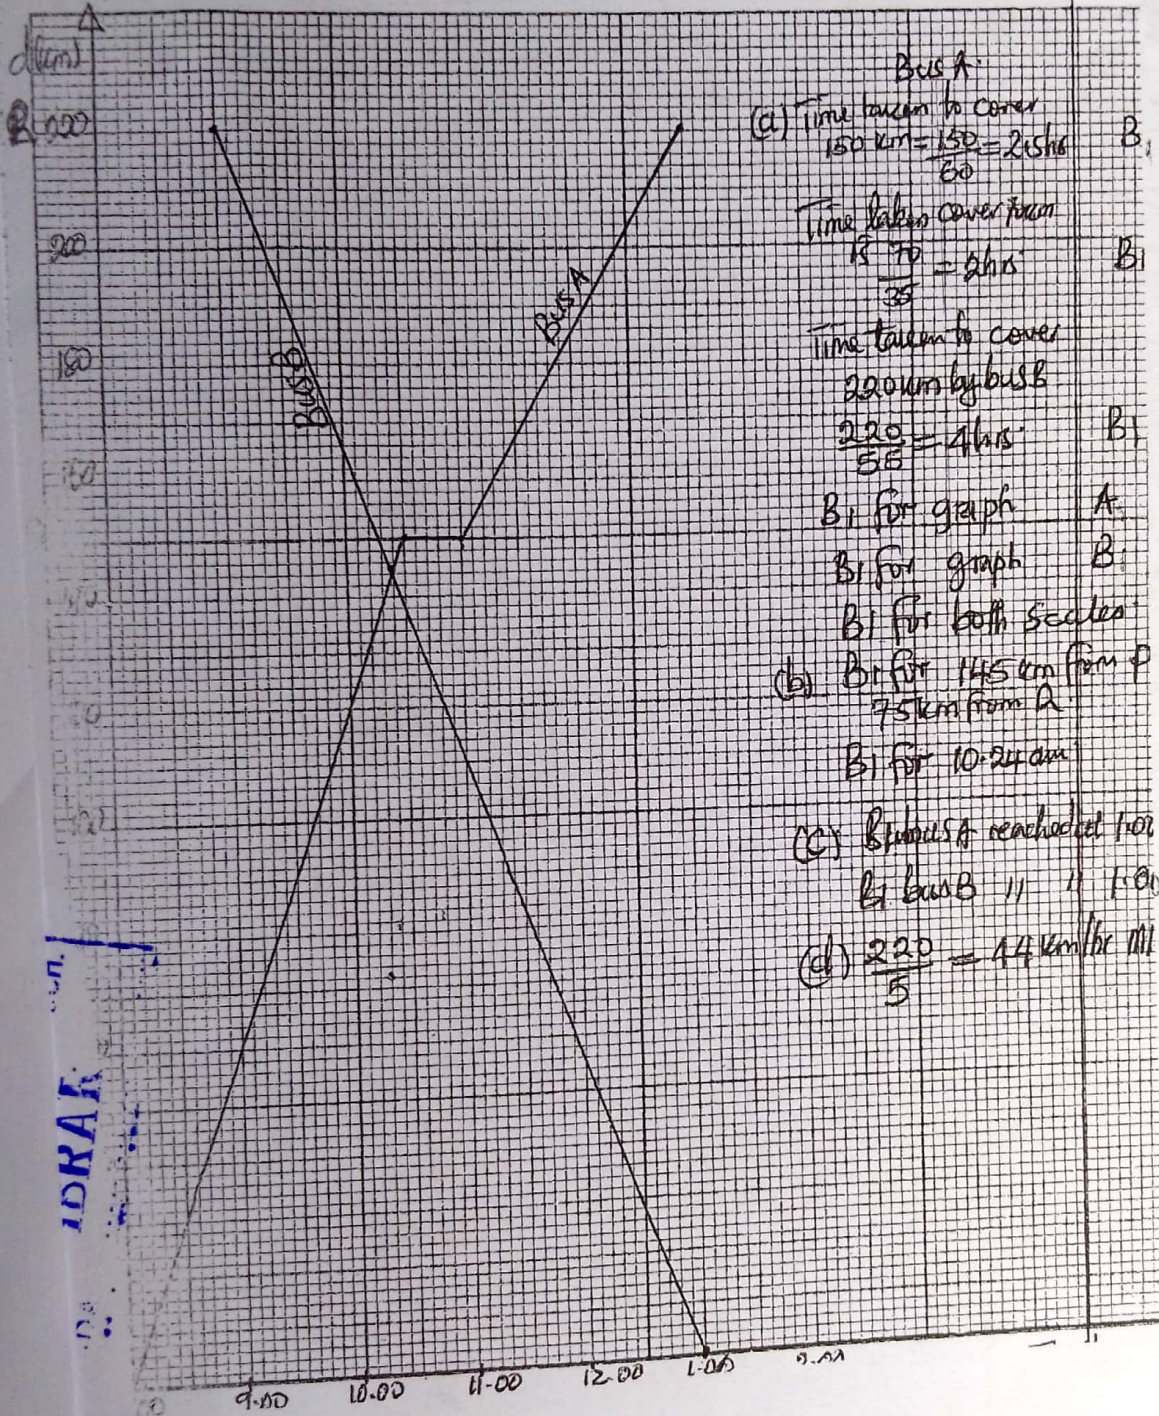 d(km)
220
200
180
160
Bus B
Bus A
9.00
10.00
11.00
12.00
1.00
Bus A
(a) Time taken to cover
150 km = 150/60 = 2.5hrs B1
Time taken cover from
70/35 = 2hrs B1
Time taken to cover
220km by bus B
220/55 = 4hrs B1
B1 for graph A
B1 for graph B
B1 for both scales
(b) B1 for 145 km from P
75km from Q
B1 for 10.24 am
(c) B1 bus A reached at 1.00
B1 bus B " " 1.00
(d) 220/5 = 44 km/hr M1